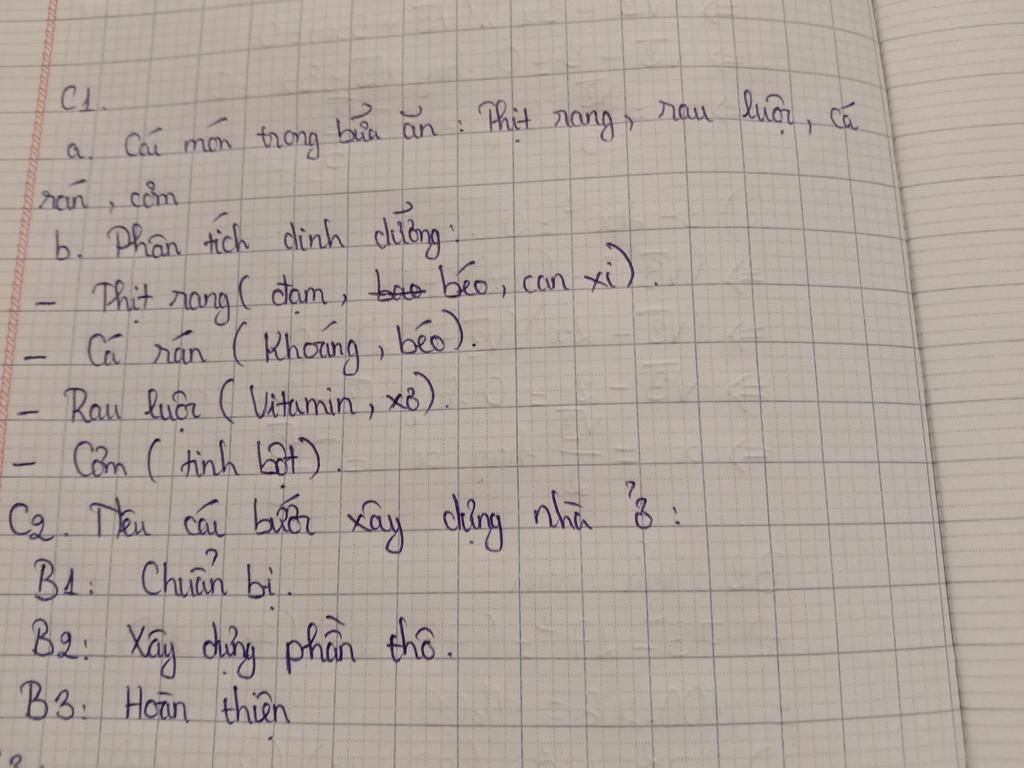 C1.
a. Các món trong bữa ăn: Thịt rang, rau luộc, cá
rán, cơm
b. Phân tích dinh dưỡng:
- Thịt rang (đạm, béo, can xi).
- Cá rán (Khoáng, béo).
- Rau luộc (Vitamin, xơ).
- Cơm (tinh bột).
C2. Nêu các bước xây dựng nhà ở:
B1: Chuẩn bị.
B2: Xây dựng phần thô.
B3: Hoàn thiện